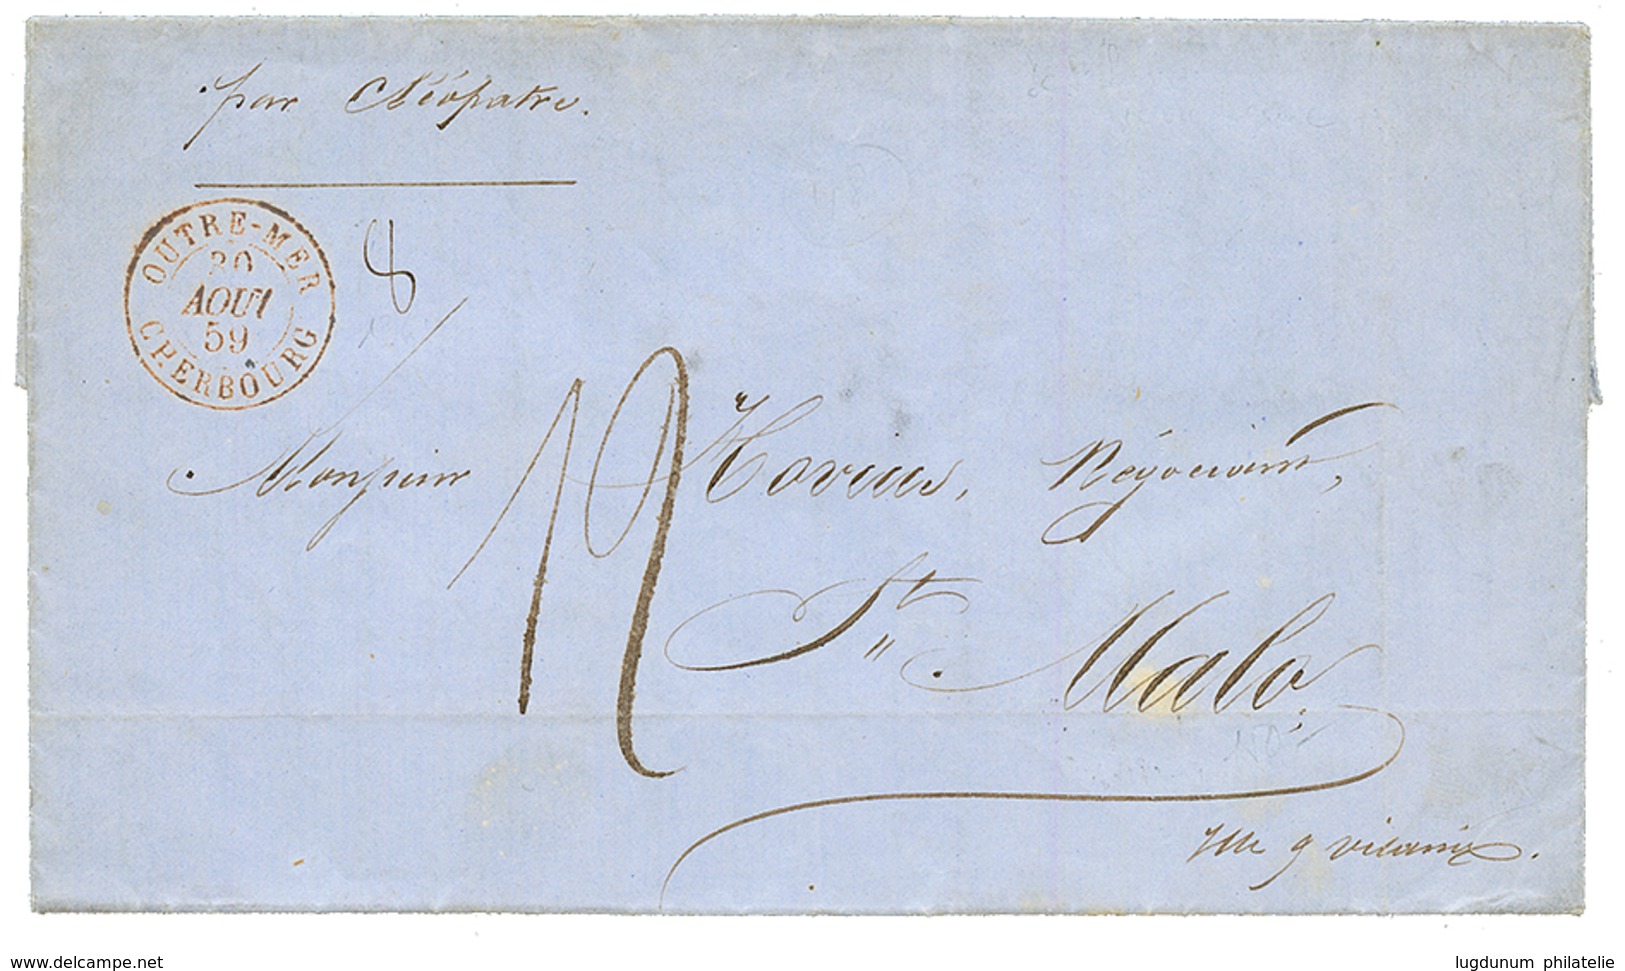 par Cléopatre.
OUTRE-MER
30
AOUT
59
CHERBOURG
8
Monsieur Hovius, Négociant,
St. Malo
delcampe.net
lugdunum philatelie